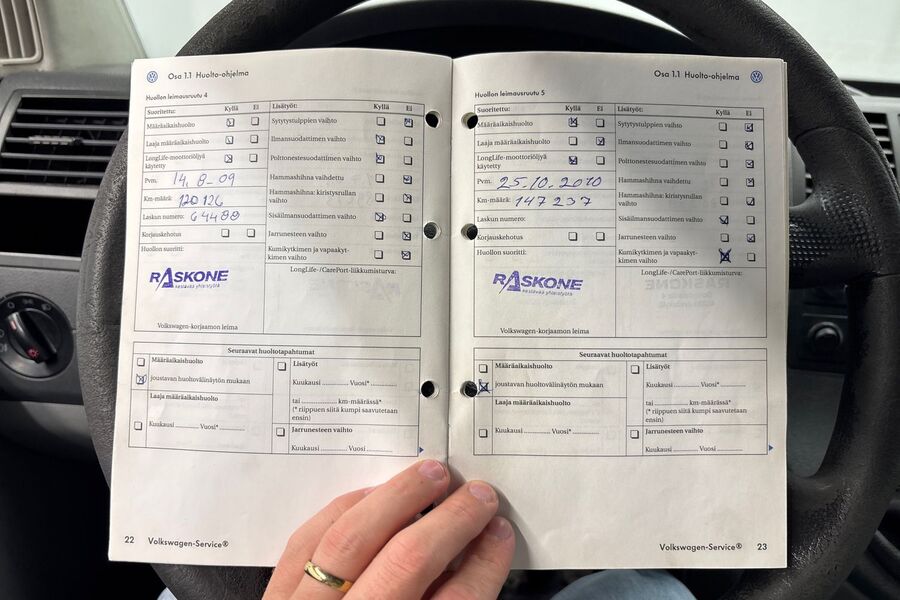 Osa 1.1 Huolto-ohjelma
Huollon leimausruutu 4
Suoritettu: Kyllä Ei
Määräaikaishuolto
Laaja määräaikaishuolto
LongLife-moottoriöljyä käytetty
Pvm. 14.8-09
Km-määrä: 120126
Laskun numero: 64480
Korjauskehotus
Huollon suoritti:
RASKONE
kestävää yhteistyötä
Volkswagen-korjaamon leima
Lisätyöt: Kyllä Ei
Sytytystulppien vaihto
Ilmansuodattimen vaihto
Polttonestesuodattimen vaihto
Hammashihna vaihdettu
Hammashihna: kiristysrullan
vaihto
Sisäilmansuodattimen vaihto
Jarrunesteen vaihto
Kumikytkimen ja vapaakyt-
kimen vaihto
LongLife-/CarePort-liikkumisturva:
Seuraavat huoltotapahtumat
Määräaikaishuolto
joustavan huoltovälinäytön mukaan
Laaja määräaikaishuolto
Kuukausi ............ Vuosi* ............
Lisätyöt
Kuukausi ............ Vuosi* ............
tai ............ km-määrässä*
(* riippuen siitä kumpi saavutetaan
ensin)
Jarrunesteen vaihto
Kuukausi ............ Vuosi ............
22 Volkswagen-Service®
Osa 1.1 Huolto-ohjelma
Huollon leimausruutu 5
Suoritettu: Kyllä Ei
Määräaikaishuolto
Laaja määräaikaishuolto
LongLife-moottoriöljyä
käytetty
Pvm. 25.10.2010
Km-määrä: 147237
Laskun numero:
Korjauskehotus
Huollon suoritti:
RASKONE
kestävää yhteistyötä
Volkswagen-korjaamon leima
Lisätyöt: Kyllä Ei
Sytytystulppien vaihto
Ilmansuodattimen vaihto
Polttonestesuodattimen vaihto
Hammashihna vaihdettu
Hammashihna: kiristysrullan
vaihto
Sisäilmansuodattimen vaihto
Jarrunesteen vaihto
Kumikytkimen ja vapaakyt-
kimen vaihto
LongLife-/CarePort-liikkumisturva:
Seuraavat huoltotapahtumat
Määräaikaishuolto
joustavan huoltovälinäytön mukaan
Laaja määräaikaishuolto
Kuukausi ............ Vuosi* ............
Lisätyöt
Kuukausi ............ Vuosi* ............
tai ............ km-määrässä*
(* riippuen siitä kumpi saavutetaan
ensin)
Jarrunesteen vaihto
Kuukausi ............ Vuosi ............
Volkswagen-Service® 23